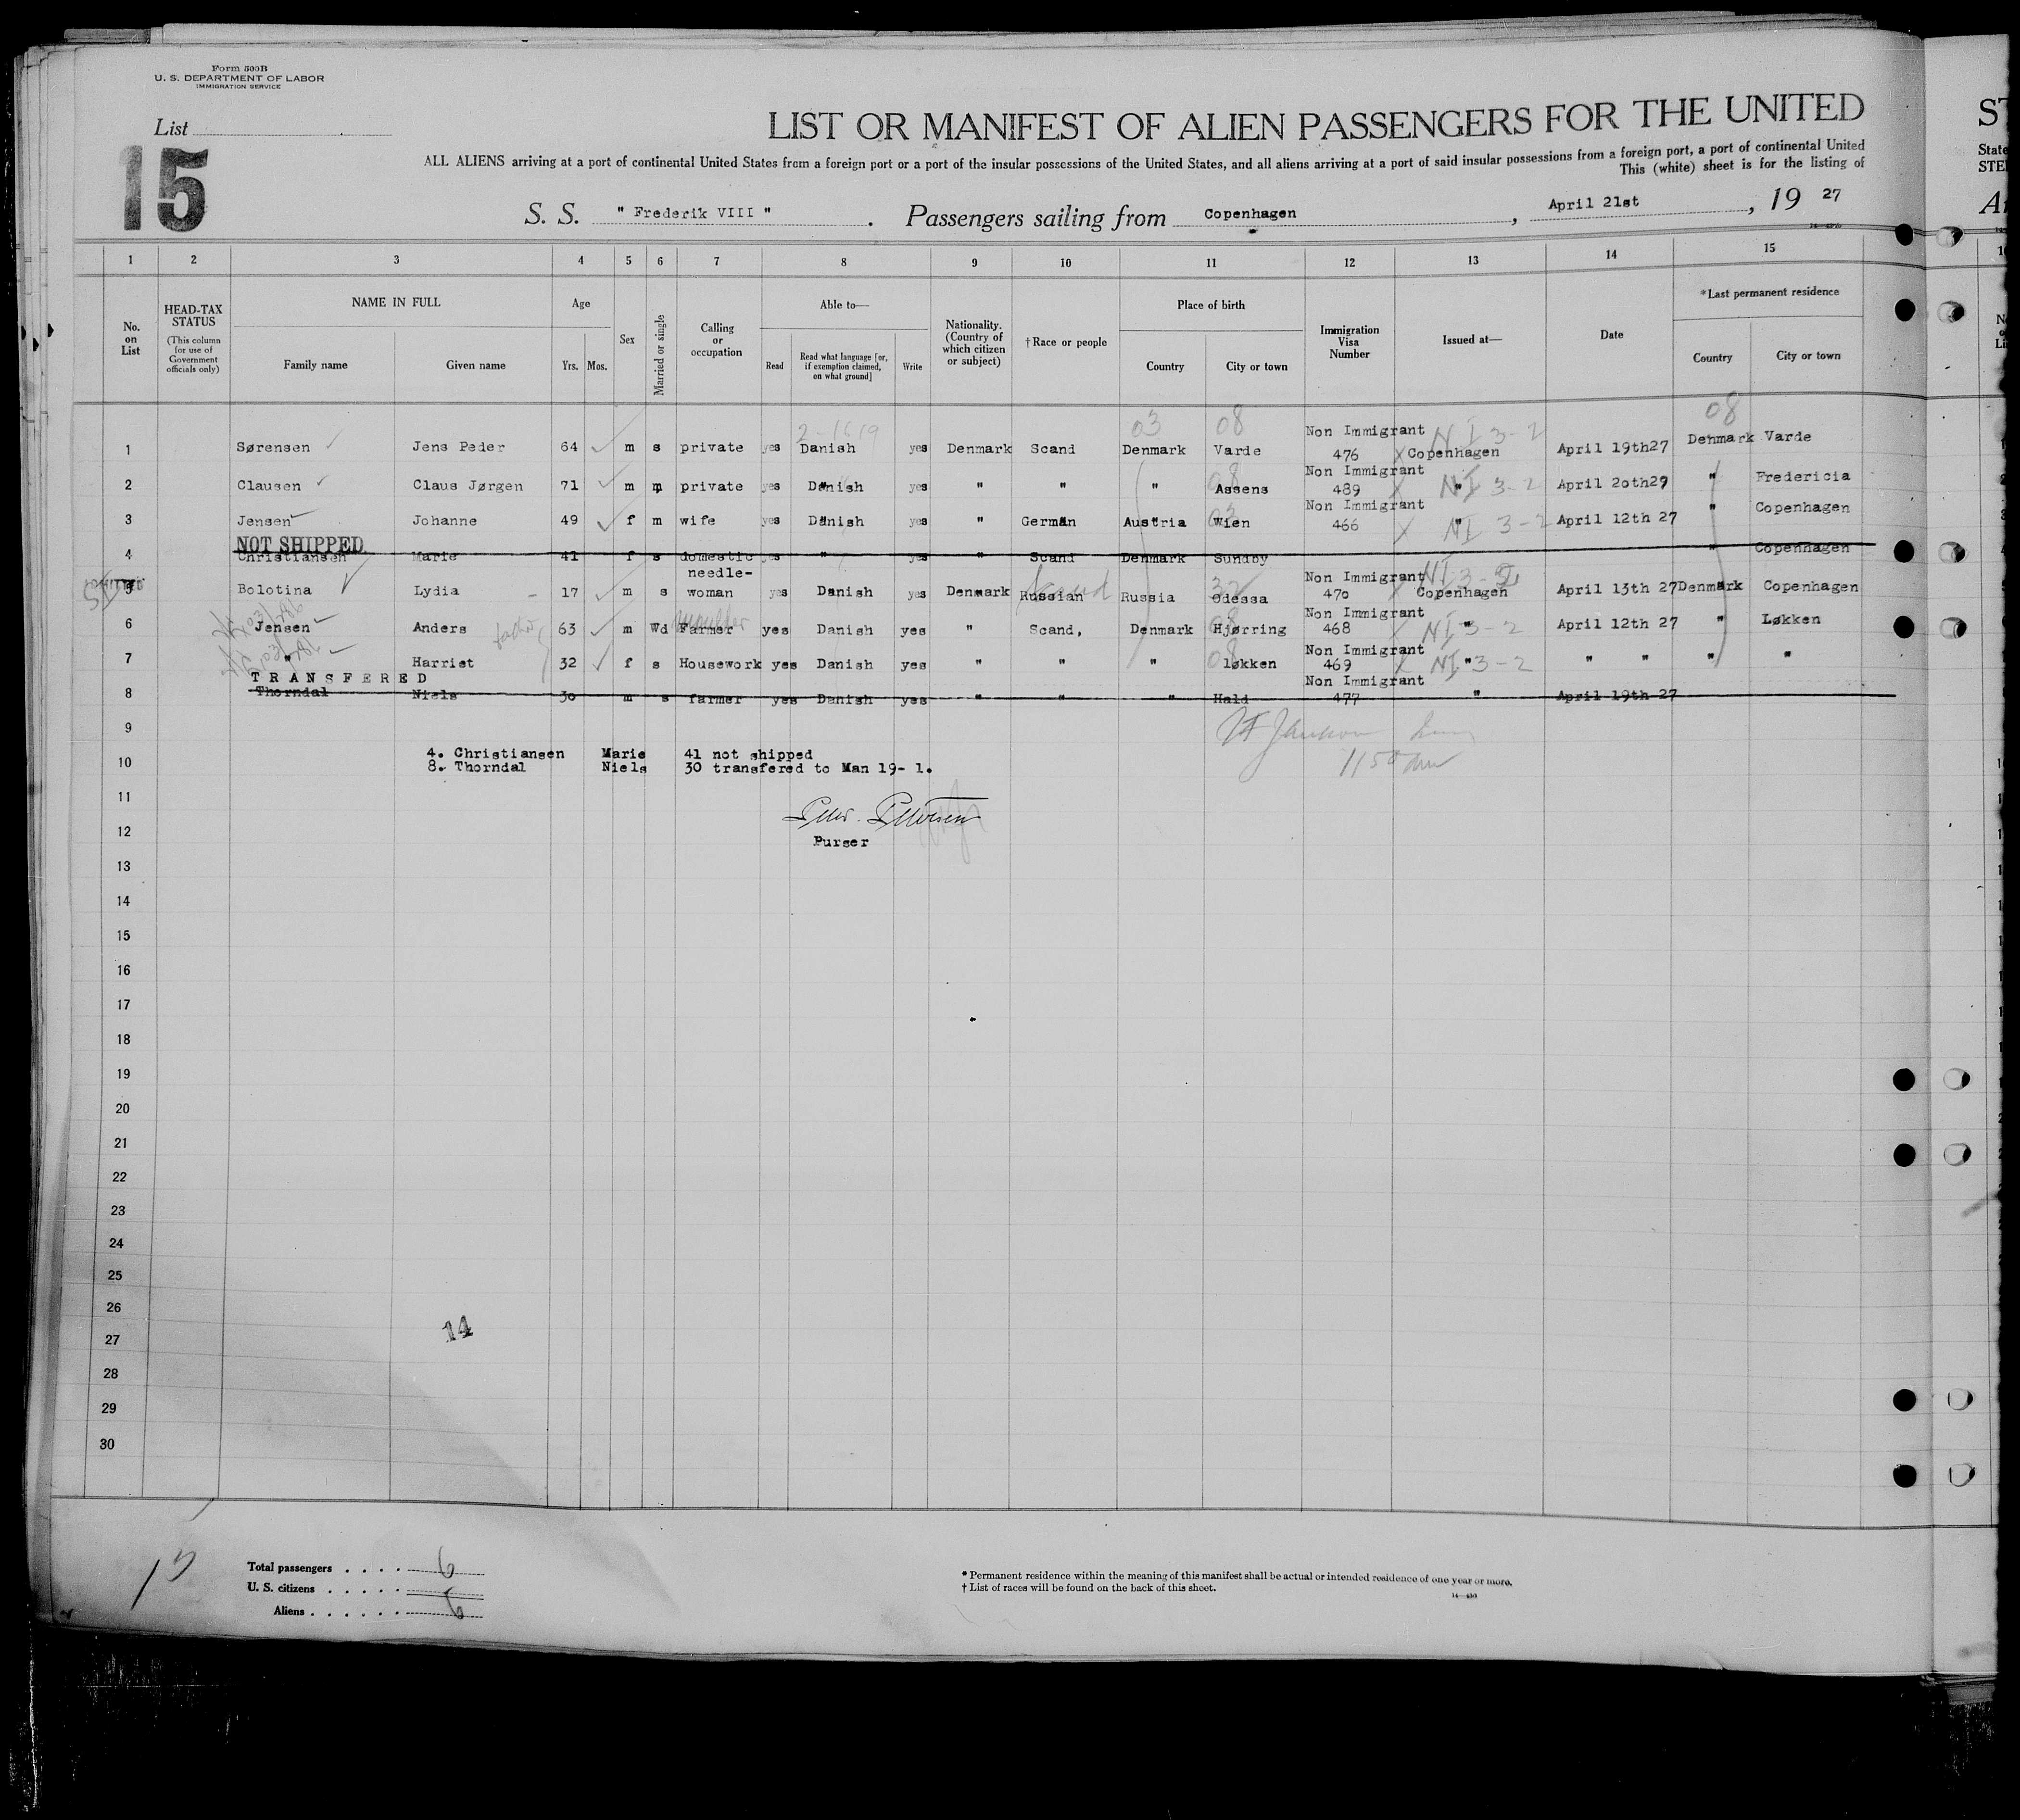 Form 500B
U. S. DEPARTMENT OF LABOR
IMMIGRATION SERVICE
List
15
LIST OR MANIFEST OF ALIEN PASSENGERS FOR THE UNITED
ALL ALIENS arriving at a port of continental United States from a foreign port or a port of the insular possessions of the United States, and all aliens arriving at a port of said insular possessions from a foreign port, a port of continental United
This (white) sheet is for the listing of
S. S. " Frederik VIII ". Passengers sailing from Copenhagen, April 21st, 19 27
1 2 3 4 5 6 7 8 9 10 11 12 13 14 15
No. on List
HEAD-TAX STATUS
(This column for use of Government officials only)
NAME IN FULL
Family name Given name
Age
Yrs. Mos.
Sex
Married or single
Calling or occupation
Able to—
Read
Read what language [or, if exemption claimed, on what ground]
Write
Nationality. (Country of which citizen or subject)
†Race or people
Place of birth
Country City or town
Immigration Visa Number
Issued at—
Date
*Last permanent residence
Country City or town
2-1619 03 08 08
1 Sørensen Jens Peder 64 m s private yes Danish yes Denmark Scand Denmark Varde Non Immigrant 476 Copenhagen NI 3-2 April 19th27 Denmark Varde
2 Clausen Claus Jørgen 71 m m private yes Danish yes " " " Assens 08 Non Immigrant 489 " NI 3-2 April 20th27 " Fredericia
3 Jensen Johanne 49 f m wife yes Danish yes " German Austria Wien 03 Non Immigrant 466 " NI 3-2 April 12th 27 " Copenhagen
NOT SHIPPED
4 Christiansen Marie 41 f s domestic yes " yes " Scand Denmark Sundby " Copenhagen
5 Bolotina Lydia 17 m s needle-woman yes Danish yes Denmark Russian Scand Russia Odessa 32 Non Immigrant 470 Copenhagen NI 3-2 April 13th 27 Denmark Copenhagen
6 Jensen Anders father 63 m Wd Farmer yes Danish yes " Scand, Denmark Hjørring 08 Non Immigrant 468 " NI 3-2 April 12th 27 " Løkken
7 " Harriet 32 f s Housework yes Danish yes " " " løkken 08 Non Immigrant 469 " NI 3-2 " " " "
TRANSFERED
8 Thorndal Niels 30 m s farmer yes Danish yes " " " Hald Non Immigrant 477 " April 19th 27
9
4. Christiansen Marie 41 not shipped
10
8. Thorndal Niels 30 transfered to Man 19- 1.
11
12
Purser
13
14
15
16
17
18
19
20
21
22
23
24
25
26
27
14
28
29
30
Total passengers 6
U. S. citizens
Aliens 6
* Permanent residence within the meaning of this manifest shall be actual or intended residence of one year or more.
† List of races will be found on the back of this sheet.